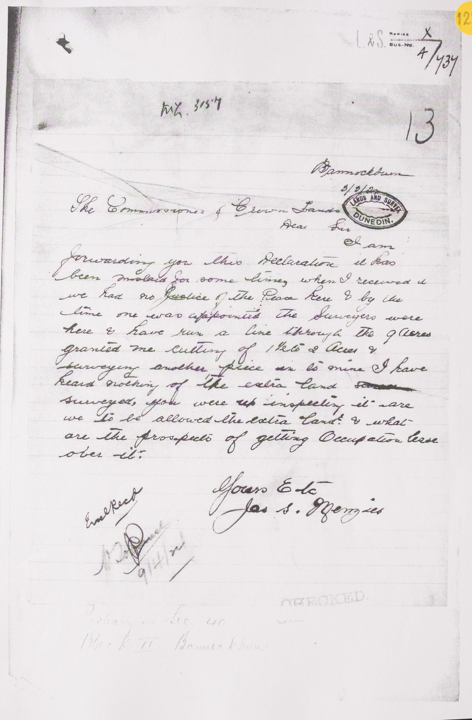 12
L & S.
X
4/737
ML. 3157
13
Bannockburn
LANDS AND SURVEY
DUNEDIN.
The Commissioner of Crown Lands
Dear Sir
I am
forwarding you this Declaration it has
been mislaid for some time, when I received it
we had no Justice of the Peace here & by the
time one was appointed the Surveyors were
here & have run a line through the 9 Acres
granted me cutting of 1½ to 2 Acres &
surveying another piece on to mine I have
heard nothing of the extra land
surveyed, you were up inspecting it are
we to be allowed the extra land? & what
are the prospects of getting Occupation lease
over it.
Yours Etc
Jas S. Menzies
9/4/24
Sec
Blk II Bannockburn